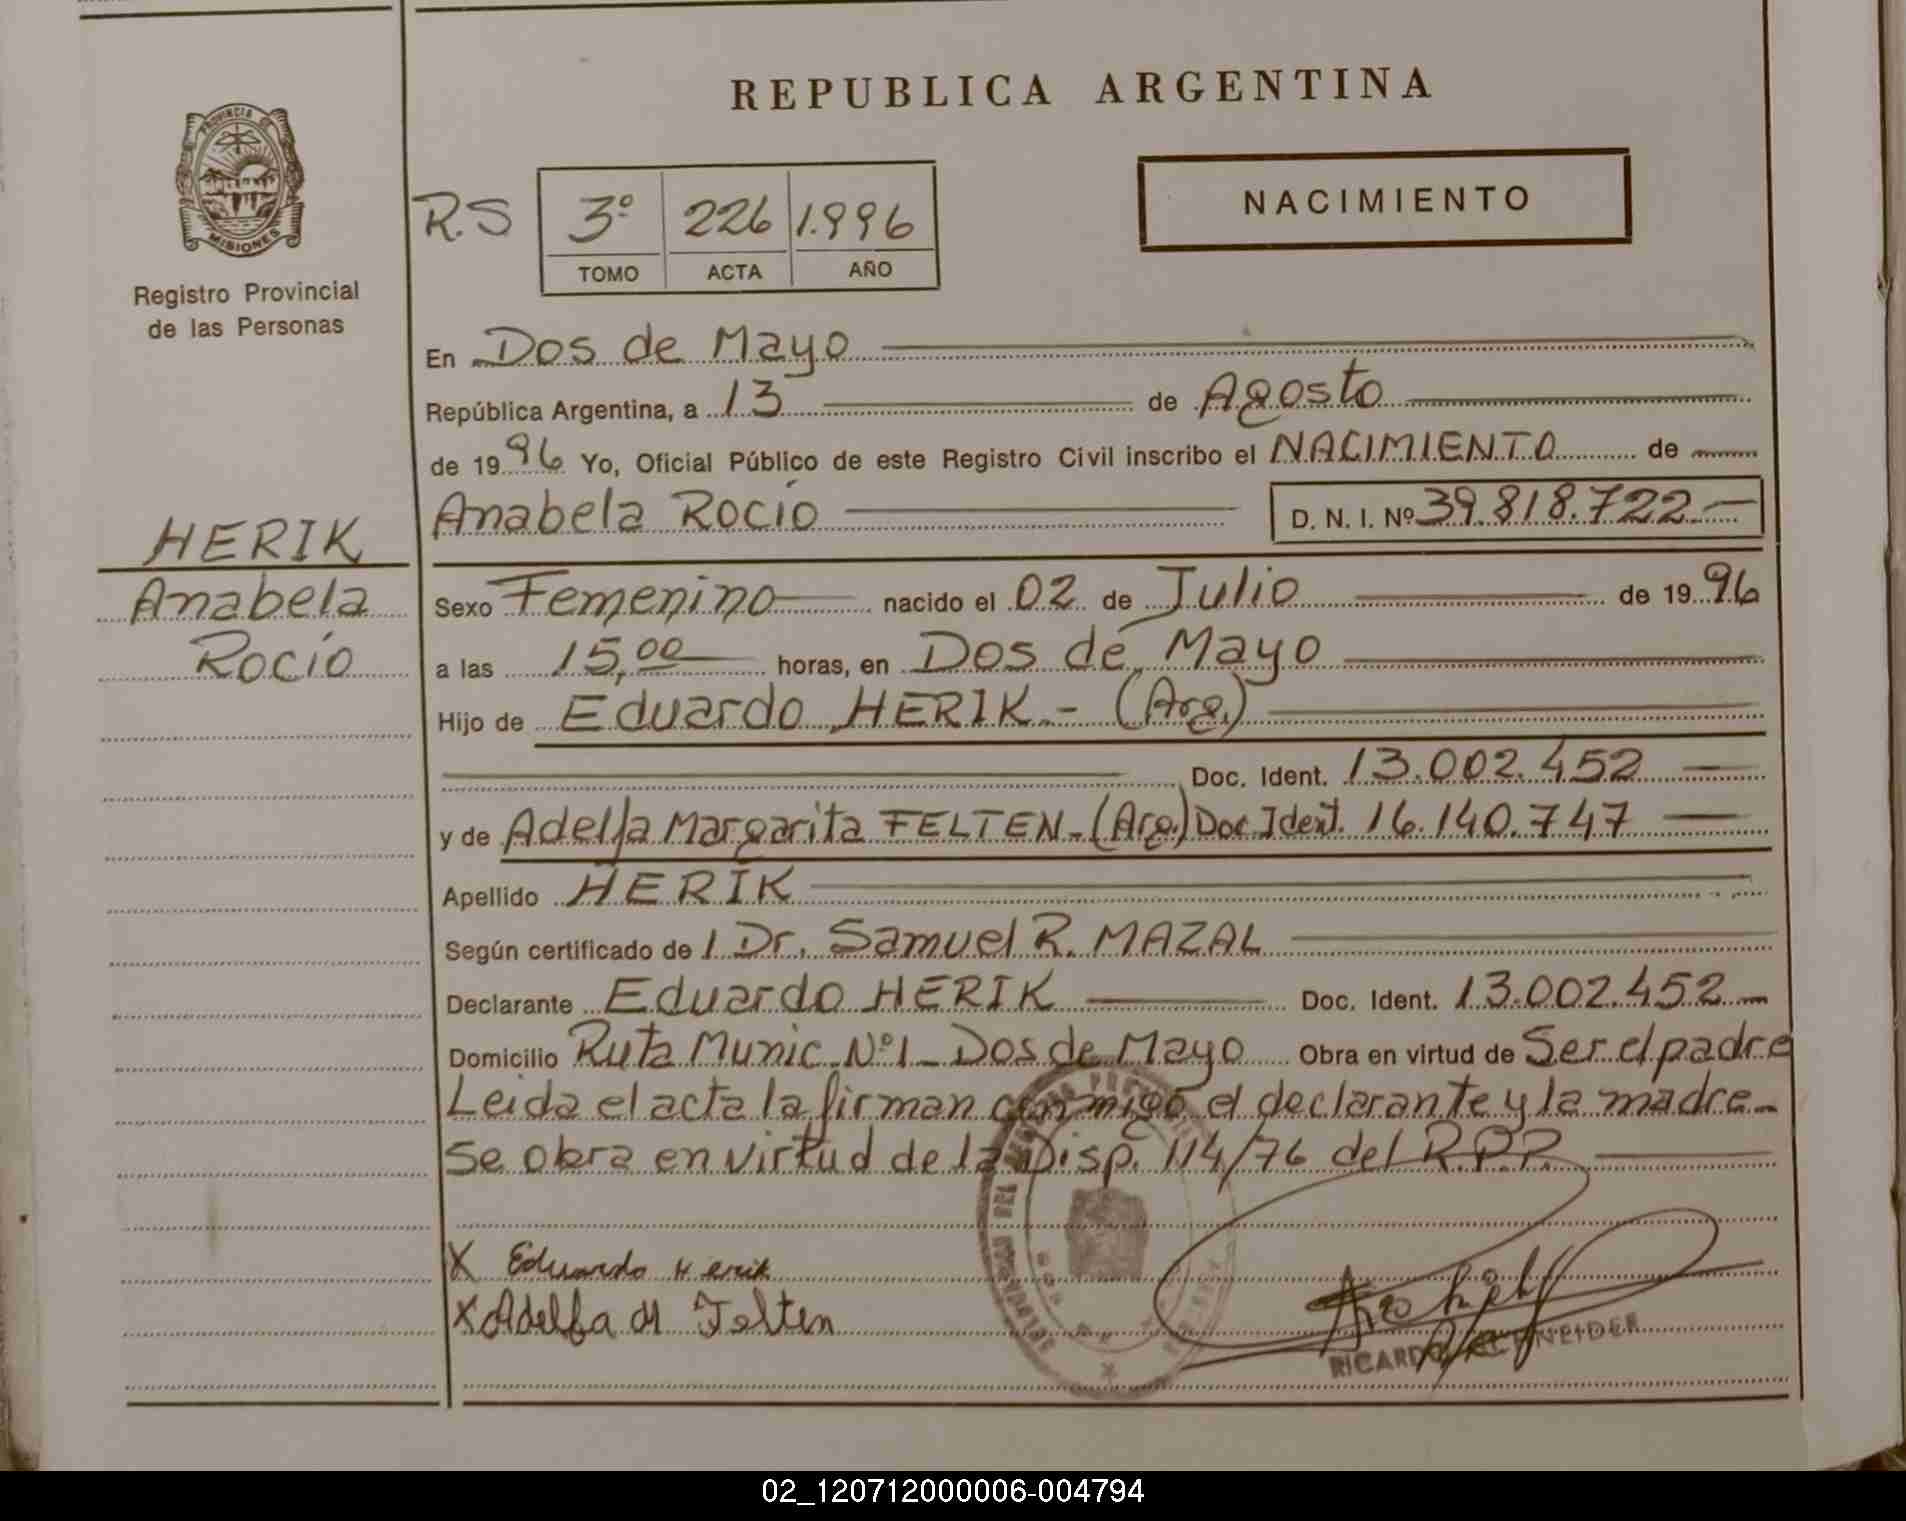 REPUBLICA ARGENTINA
PROVINCIA DE
MISIONES
Registro Provincial
de las Personas
NACIMIENTO
R.S
3º 226 1.996
TOMO ACTA AÑO
En Dos de Mayo
República Argentina, a 13 de Agosto
de 1996 Yo, Oficial Público de este Registro Civil inscribo el NACIMIENTO de
Anabela Rocío D. N. I. Nº 39.818.722.-
HERIK
Anabela
Rocío
Sexo Femenino nacido el 02 de Julio de 1996
a las 15,00 horas, en Dos de Mayo
Hijo de Eduardo HERIK.- (Arg.)
Doc. Ident. 13.002.452
y de Adelfa Margarita FELTEN-(Arg.) Doc. Ident. 16.140.747
Apellido HERIK
Según certificado de / Dr. Samuel R. MAZAL
Declarante Eduardo HERIK Doc. Ident. 13.002.452
Domicilio Ruta Munic. Nº1- Dos de Mayo Obra en virtud de Ser el padre
Leida el acta la firman conmigo el declarante y la madre-
Se obra en virtud de la Disp. 114/76 del R.P.P.
X Eduardo Herik
X Adelfa M Felten
RICARDO SCHNEIDER
02_120712000006-004794